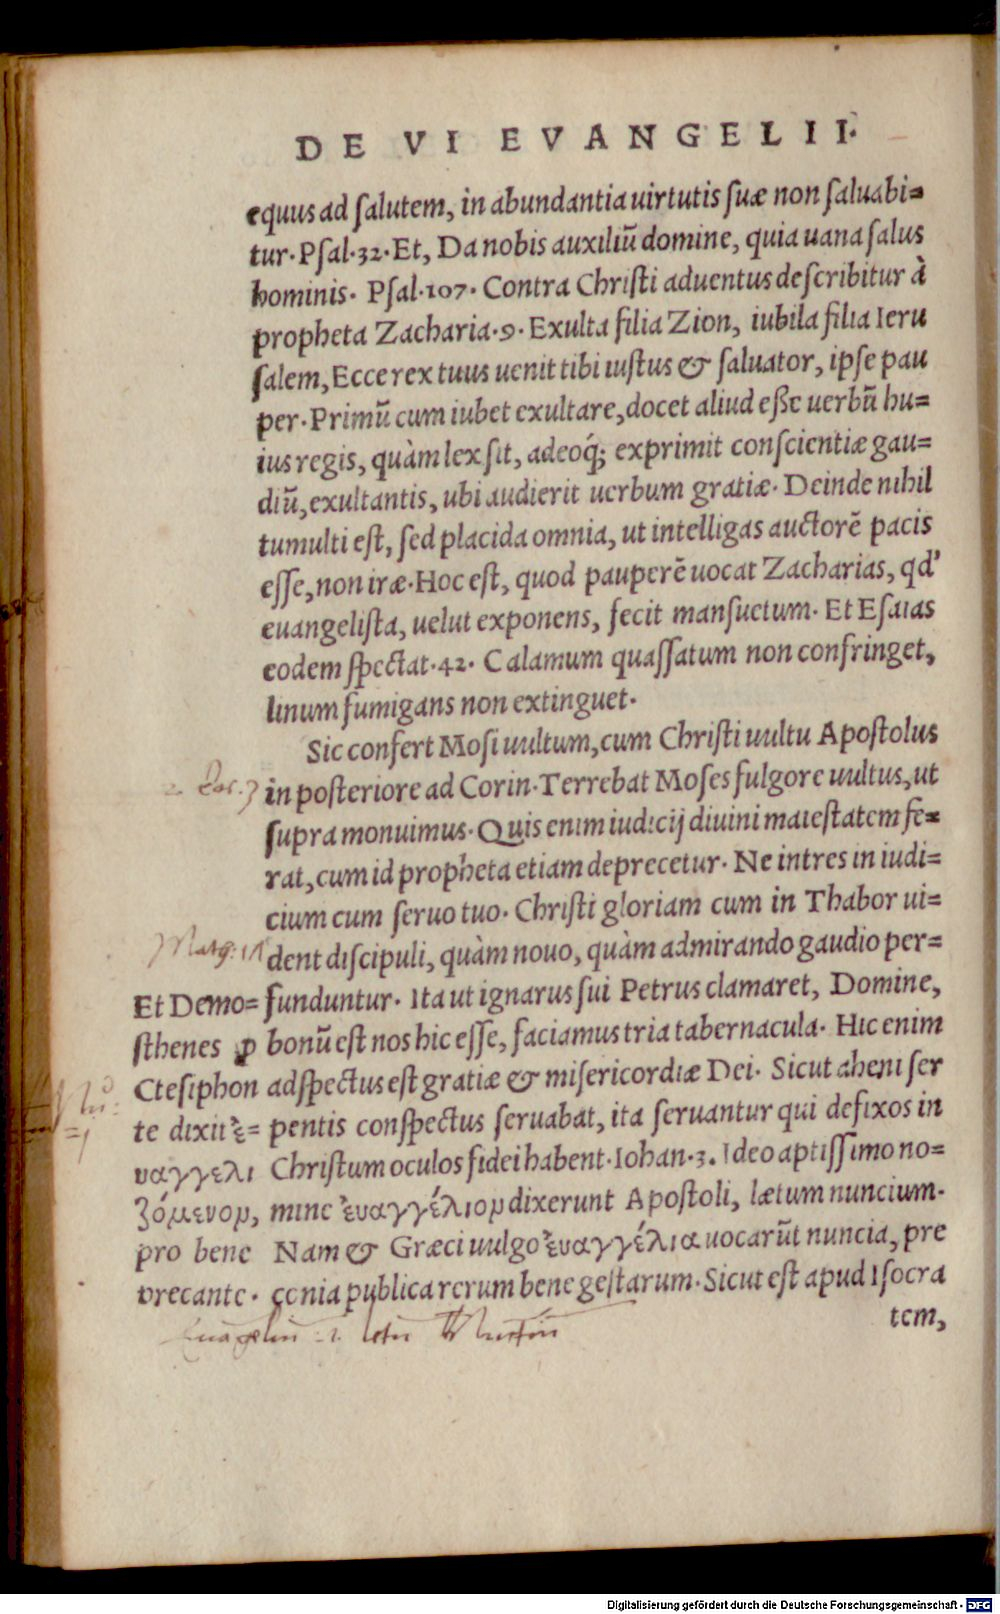 DE VI EVANGELII.
equus ad ſalutem, in abundantia uirtutis ſuæ non ſaluabi=
tur. Pſal. 32. Et, Da nobis auxiliũ domine, quia uana ſalus
hominis. Pſal. 107. Contra Chriſti aduentus deſcribitur à
propheta Zacharia. 9. Exulta filia Zion, iubila filia Ieru
ſalem, Ecce rex tuus uenit tibi iuſtus & ſaluator, ipſe pau
per. Primũ cum iubet exultare, docet aliud eſſe uerbũ hu=
ius regis, quàm lex ſit, adeoq́; exprimit conſcientiæ gau=
diũ, exultantis, ubi audierit uerbum gratiæ. Deinde nihil
tumulti eſt, ſed placida omnia, ut intelligas auctorẽ pacis
eſſe, non iræ. Hoc eſt, quod pauperẽ uocat Zacharias, qd'
euangeliſta, uelut exponens, fecit manſuetum. Et Eſaias
eodem ſpectat. 42. Calamum quaſſatum non confringet,
linum fumigans non extinguet.
Sic confert Moſi uultum, cum Chriſti uultu Apoſtolus
2. Cor. 3
in poſteriore ad Corin. Terrebat Moſes fulgore uultus, ut
ſupra monuimus. Quis enim iudicij diuini maieſtatem fe=
rat, cum id propheta etiam deprecetur. Ne intres in iudi=
cium cum ſeruo tuo. Chriſti gloriam cum in Thabor ui=
dent diſcipuli, quàm nouo, quàm admirando gaudio per=
funduntur. Ita ut ignarus ſui Petrus clamaret, Domine,
bonũ eſt nos hic eſſe, faciamus tria tabernacula. Hic enim
adſpectus eſt gratiæ & miſericordiæ Dei. Sicut aheni ſer
pentis conſpectus ſeruabat, ita ſeruantur qui defixos in
Chriſtum oculos fidei habent. Iohan. 3. Ideo aptiſſimo no=
mine ἐυαγγέλιον dixerunt Apoſtoli, lætum nuncium.
Nam & Græci uulgo ἐυαγγέλια uocarũt nuncia, pre
conia publica rerum bene geſtarum. Sicut eſt apud Iſocra
tem,
Et Demo=
ſthenes p
Cteſiphon
te dixit ἐ=
υαγγελι
ζόμενον,
pro bene
precante.